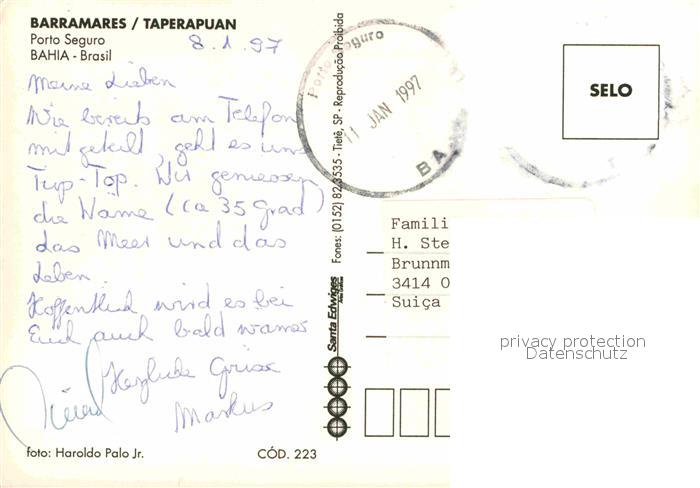 BARRAMARES / TAPERAPUAN
Porto Seguro
BAHIA - Brasil
8.1.97
Meine Lieben
Wie bereits am Telefon
mitgeteilt, geht es uns
Tip-Top. Wir geniessen
die Wärme (ca 35 Grad)
das Meer und das
Leben.
Hoffentlich wird es bei
Euch auch bald warmer
Herzliche Grüsse
Markus
foto: Haroldo Palo Jr.
CÓD. 223
Santa Edwiges
Fones: (0152) 82-3535 - Tietê, SP - Reprodução Proibida
Porto Seguro
11 JAN 1997
BA
SELO
Famili
H. Ste
Brunnm
3414 O
Suiça
privacy protection
Datenschutz